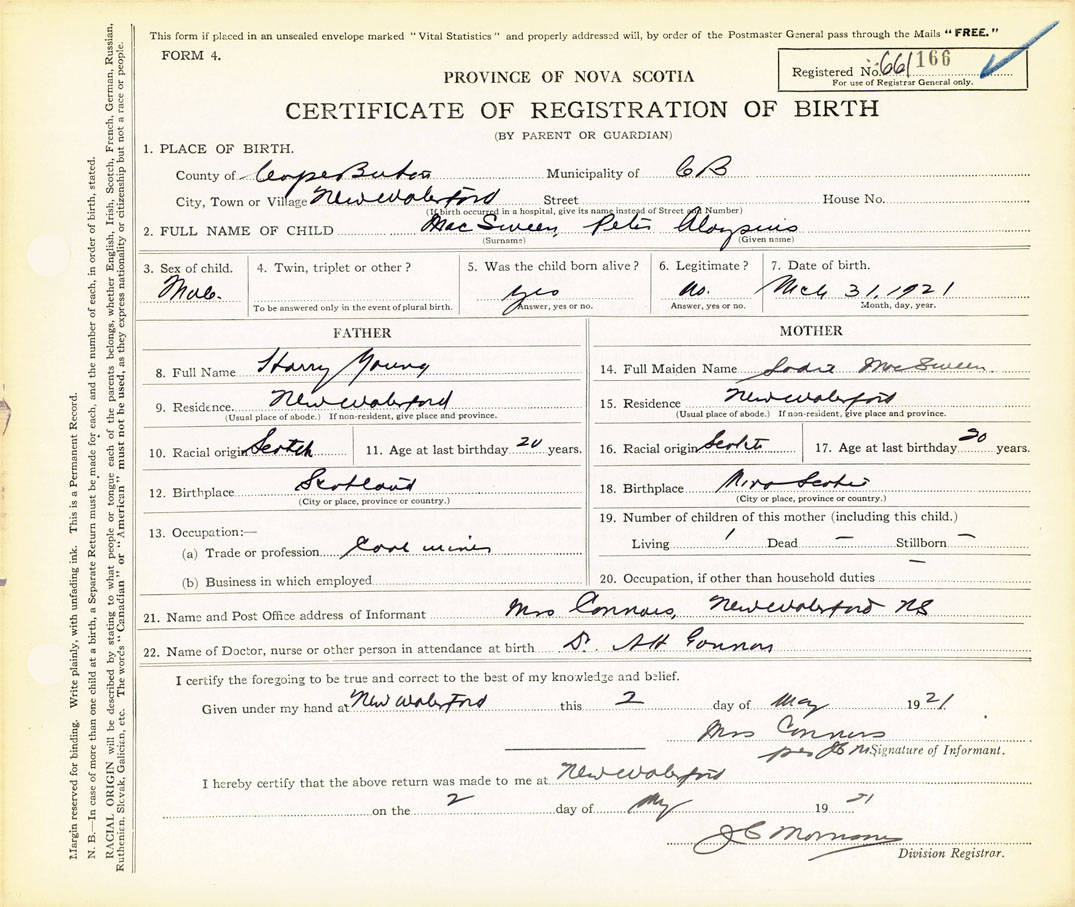 This form if placed in an unsealed envelope marked "Vital Statistics" and properly addressed will, by order of the Postmaster General pass through the Mails "FREE."
FORM 4.
Registered No. 661166
For use of Registrar General only.
PROVINCE OF NOVA SCOTIA
CERTIFICATE OF REGISTRATION OF BIRTH
(BY PARENT OR GUARDIAN)
1. PLACE OF BIRTH.
County of Cape Breton Municipality of C B
City, Town or Village New Waterford Street House No.
(If birth occurred in a hospital, give its name instead of Street and Number)
2. FULL NAME OF CHILD MacSween, Peter Aloysius
(Surname) (Given name)
3. Sex of child. 4. Twin, triplet or other? 5. Was the child born alive? 6. Legitimate? 7. Date of birth.
Male. yes no. Mch 31, 1921
To be answered only in the event of plural birth. Answer, yes or no. Answer, yes or no. Month, day, year.
FATHER MOTHER
8. Full Name Harry Young
14. Full Maiden Name Sadie MacSween
9. Residence. New Waterford
(Usual place of abode.) If non-resident, give place and province.
15. Residence New Waterford
(Usual place of abode.) If non-resident, give place and province.
10. Racial origin Scotch 11. Age at last birthday 20 years.
16. Racial origin Scotch 17. Age at last birthday 20 years.
12. Birthplace Scotland
(City or place, province or country.)
18. Birthplace Nova Scotia
(City or place, province or country.)
13. Occupation:—
(a) Trade or profession Coal miner
(b) Business in which employed
19. Number of children of this mother (including this child.)
Living 1 Dead — Stillborn —
20. Occupation, if other than household duties —
21. Name and Post Office address of Informant Mrs Connors, New Waterford NS
22. Name of Doctor, nurse or other person in attendance at birth Dr. Connor
I certify the foregoing to be true and correct to the best of my knowledge and belief.
Given under my hand at New Waterford this 2 day of May 1921
Mrs Connors
per Signature of Informant.
I hereby certify that the above return was made to me at New Waterford
on the 2 day of May 1921
J C
Division Registrar.
Margin reserved for binding. Write plainly, with unfading ink. This is a Permanent Record.
N. B.—In case of more than one child at a birth, a Separate Return must be made for each, and the number of each, in order of birth, stated.
RACIAL ORIGIN will be described by stating to what people or tongue each of the parents belongs, whether English, Irish, Scotch, French, German, Russian,
Ruthenian, Slovak, Galician, etc. The words "Canadian" or "American" must not be used, as they express nationality or citizenship but not a race or people.